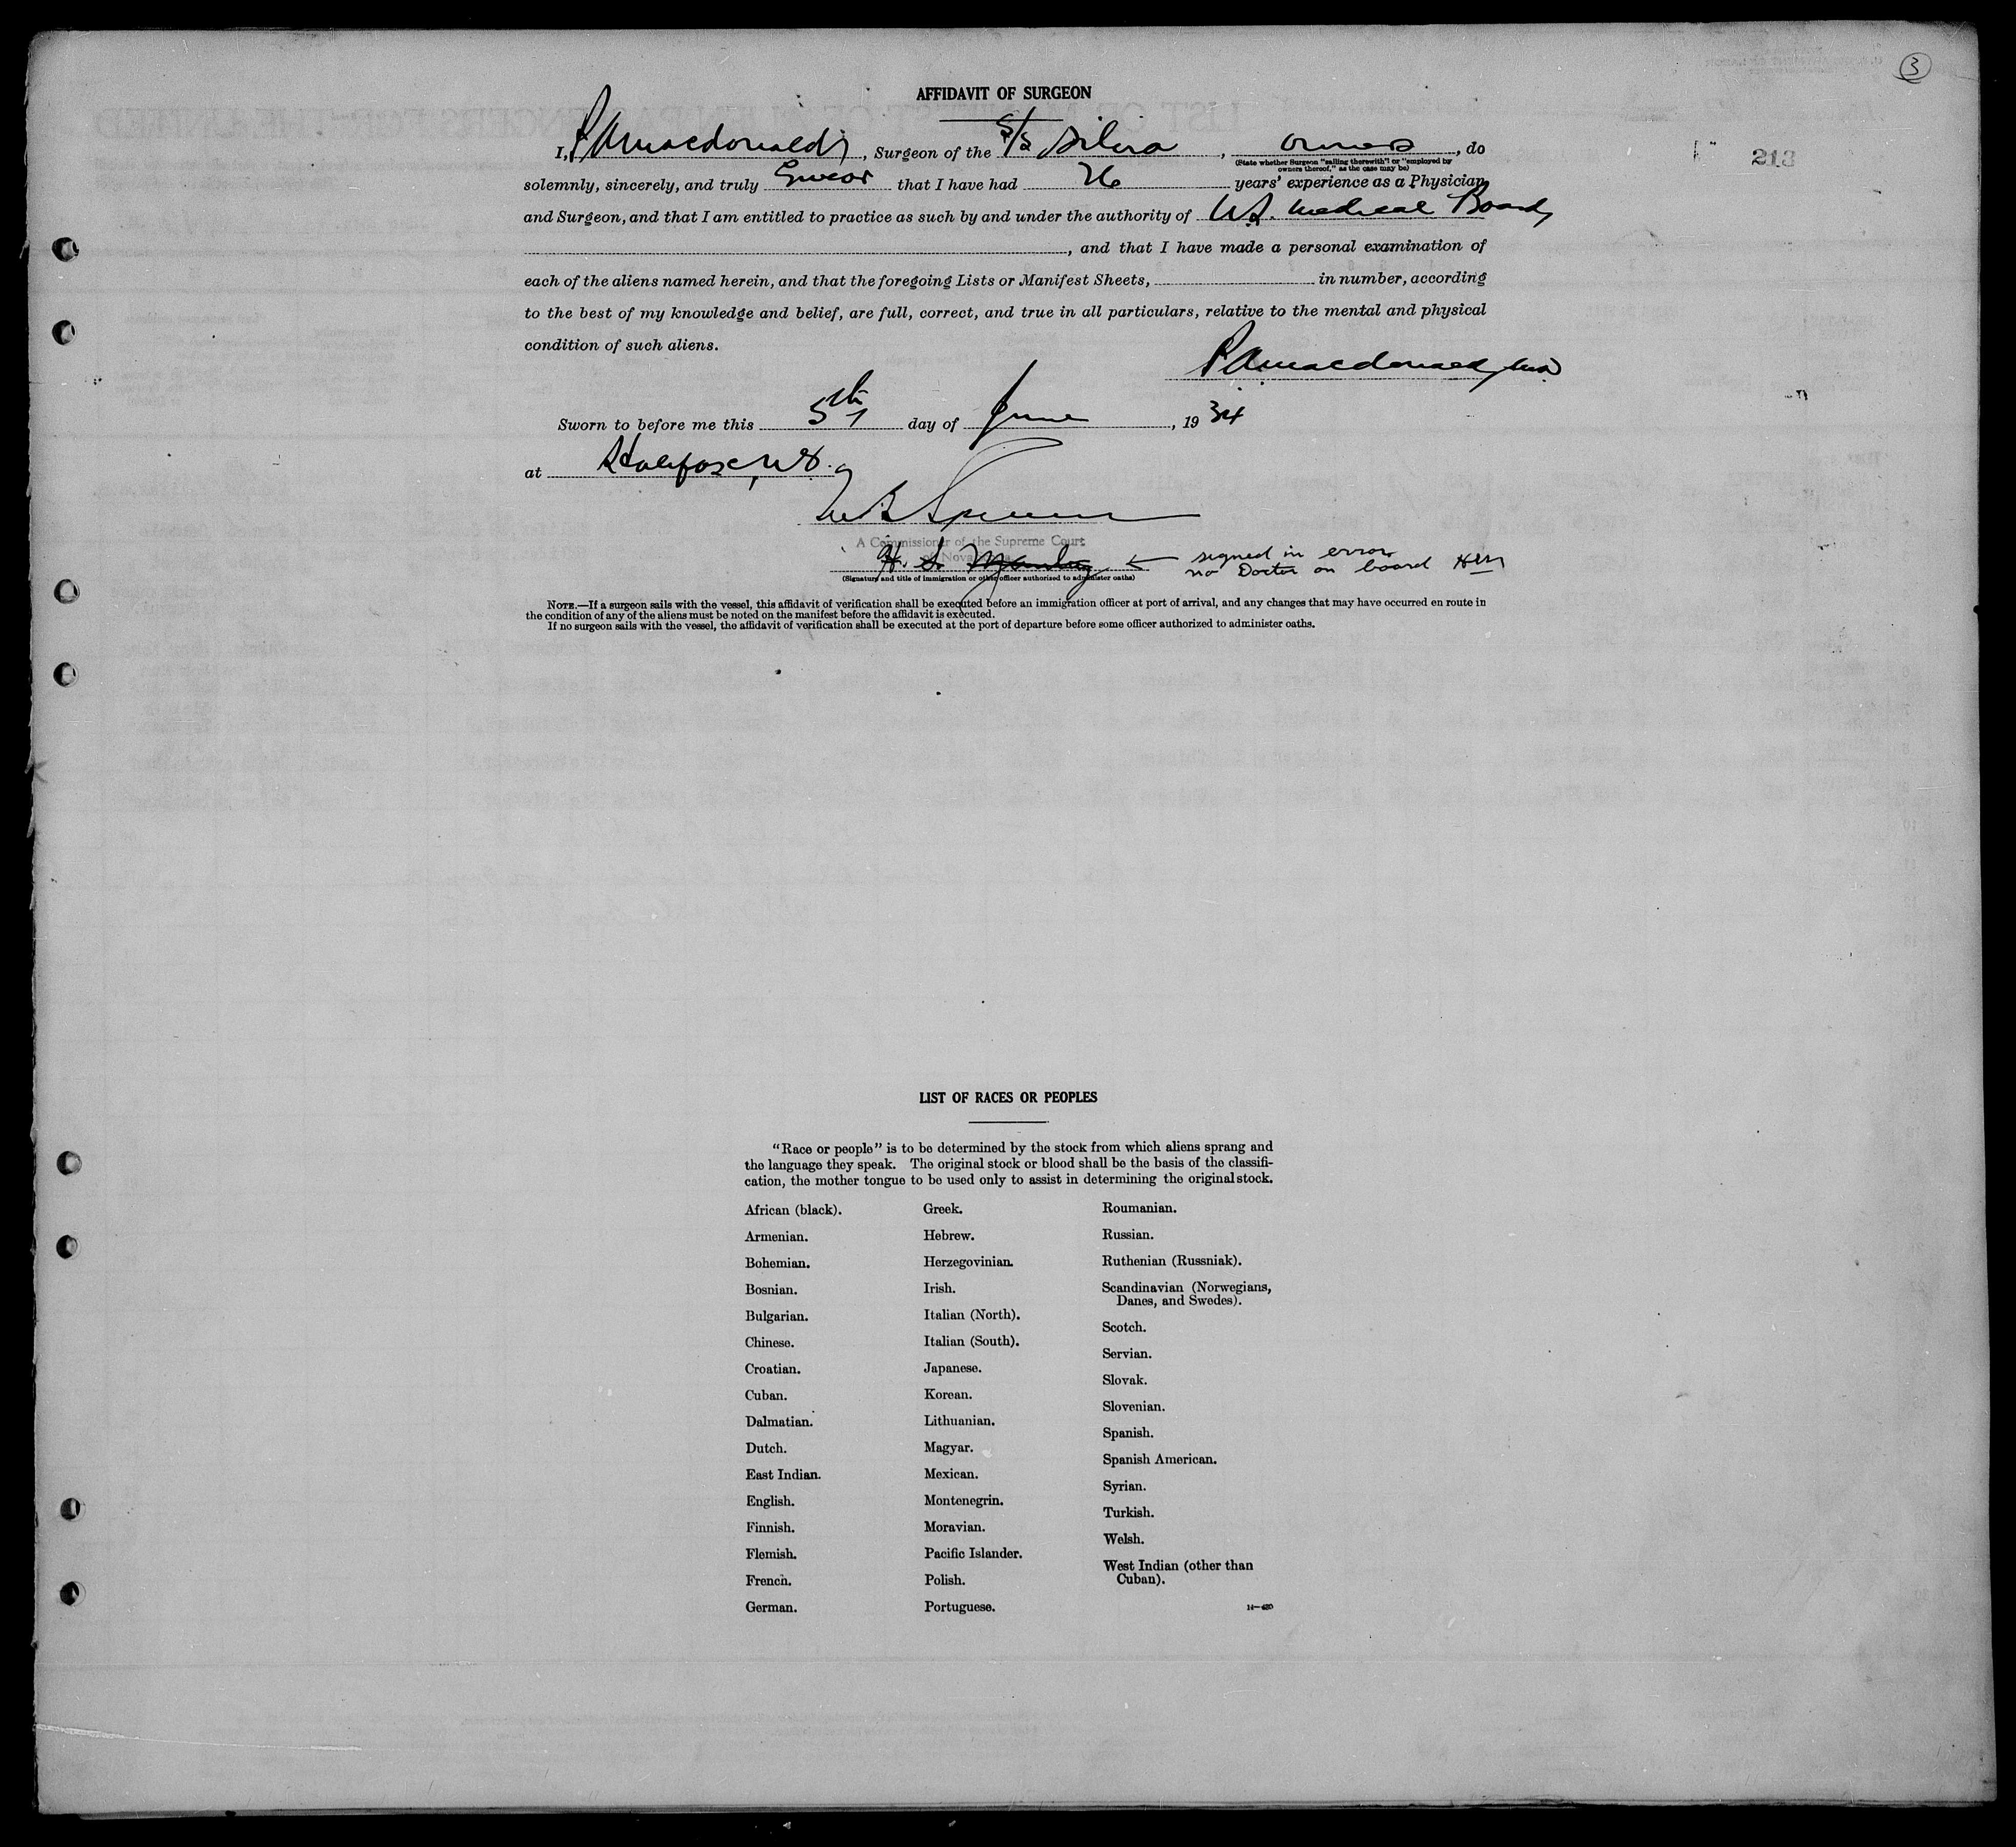 3
AFFIDAVIT OF SURGEON
I, P A Macdonald, Surgeon of the S/S Silvia, owners, do
(State whether Surgeon "sailing therewith" or "employed by
owners thereof," as the case may be)
solemnly, sincerely, and truly Swear that I have had 26 years' experience as a Physician
and Surgeon, and that I am entitled to practice as such by and under the authority of N.S. Medical Board,
, and that I have made a personal examination of
each of the aliens named herein, and that the foregoing Lists or Manifest Sheets, in number, according
to the best of my knowledge and belief, are full, correct, and true in all particulars, relative to the mental and physical
condition of such aliens.
P A Macdonald, MD
Sworn to before me this 5th day of June, 1934
at Halifax, N.S.
A Commissioner of the Supreme Court
of Nova
H. S. Manley ← signed in error
no Doctor on board HSM
(Signature and title of immigration or other officer authorized to administer oaths)
NOTE.—If a surgeon sails with the vessel, this affidavit of verification shall be executed before an immigration officer at port of arrival, and any changes that may have occurred en route in
the condition of any of the aliens must be noted on the manifest before the affidavit is executed.
If no surgeon sails with the vessel, the affidavit of verification shall be executed at the port of departure before some officer authorized to administer oaths.
213
LIST OF RACES OR PEOPLES
"Race or people" is to be determined by the stock from which aliens sprang and
the language they speak. The original stock or blood shall be the basis of the classifi-
cation, the mother tongue to be used only to assist in determining the original stock.
African (black).
Armenian.
Bohemian.
Bosnian.
Bulgarian.
Chinese.
Croatian.
Cuban.
Dalmatian.
Dutch.
East Indian.
English.
Finnish.
Flemish.
French.
German.
Greek.
Hebrew.
Herzegovinian.
Irish.
Italian (North).
Italian (South).
Japanese.
Korean.
Lithuanian.
Magyar.
Mexican.
Montenegrin.
Moravian.
Pacific Islander.
Polish.
Portuguese.
Roumanian.
Russian.
Ruthenian (Russniak).
Scandinavian (Norwegians,
Danes, and Swedes).
Scotch.
Servian.
Slovak.
Slovenian.
Spanish.
Spanish American.
Syrian.
Turkish.
Welsh.
West Indian (other than
Cuban).
14—420